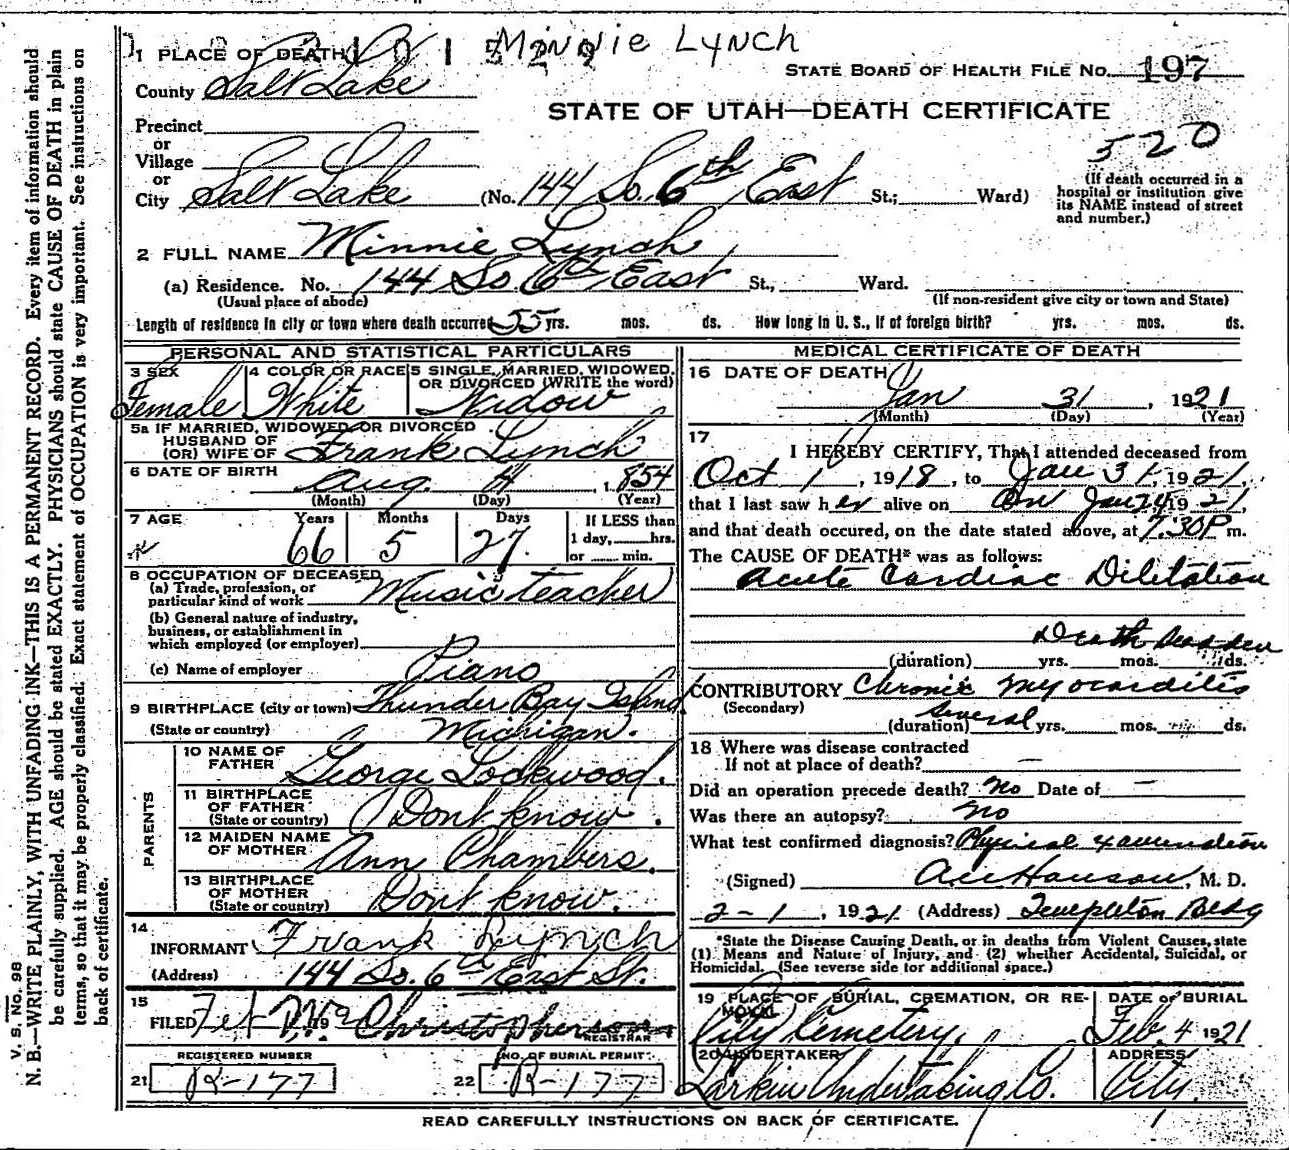 Minnie Lynch
1 PLACE OF DEATH
STATE BOARD OF HEALTH FILE No. 197
County Salt Lake
STATE OF UTAH—DEATH CERTIFICATE
Precinct
or
520
Village
or
City Salt Lake (No. 144 So. 6th East St.; Ward)
(If death occurred in a hospital or institution give its NAME instead of street and number.)
2 FULL NAME Minnie Lynch
(a) Residence. No. 144 So 6th East St., Ward.
(Usual place of abode) (If non-resident give city or town and State)
Length of residence in city or town where death occurred 55 yrs. mos. ds. How long in U. S., if of foreign birth? yrs. mos. ds.
PERSONAL AND STATISTICAL PARTICULARS
3 SEX Female
4 COLOR OR RACE White
5 SINGLE, MARRIED, WIDOWED, OR DIVORCED (WRITE the word) Widow
5a IF MARRIED, WIDOWED, OR DIVORCED
HUSBAND OF
(OR) WIFE OF Frank Lynch
6 DATE OF BIRTH Aug. 4 1854
(Month) (Day) (Year)
7 AGE Years Months Days If LESS than
66 5 27 1 day, hrs.
or min.
8 OCCUPATION OF DECEASED
(a) Trade, profession, or
particular kind of work Music teacher
(b) General nature of industry,
business, or establishment in
which employed (or employer)
(c) Name of employer Piano
9 BIRTHPLACE (city or town) Thunder Bay Island
(State or country) Michigan.
PARENTS
10 NAME OF
FATHER George Lockwood.
11 BIRTHPLACE
OF FATHER
(State or country) Dont know.
12 MAIDEN NAME
OF MOTHER Ann Chambers.
13 BIRTHPLACE
OF MOTHER
(State or country) Dont know.
14
INFORMANT Frank Lynch
(Address) 144 So. 6th East St.
15
FILED Christopherson
REGISTRAR
REGISTERED NUMBER
21 R-177
NO. OF BURIAL PERMIT
22 R-177
MEDICAL CERTIFICATE OF DEATH
16 DATE OF DEATH
Jan 31, 1921
(Month) (Day) (Year)
17
I HEREBY CERTIFY, That I attended deceased from
Oct 1, 1918, to Jan 31, 1921,
that I last saw her alive on on Jan 24 1921,
and that death occured, on the date stated above, at 7:30 P m.
The CAUSE OF DEATH* was as follows:
Acute Cardiac Dilitation
Death Sudden
(duration) yrs. mos. ds.
CONTRIBUTORY Chronic Myocarditis
(Secondary)
(duration) several yrs. mos. ds.
18 Where was disease contracted
If not at place of death? —
Did an operation precede death? No Date of —
Was there an autopsy? No
What test confirmed diagnosis? Physical examination
(Signed) Hanson, M. D.
2-1, 1921 (Address) Templeton Bldg
*State the Disease Causing Death, or in deaths from Violent Causes, state
(1) Means and Nature of Injury, and (2) whether Accidental, Suicidal, or
Homicidal. (See reverse side for additional space.)
19 PLACE OF BURIAL, CREMATION, OR REMOVAL
City Cemetery.
DATE of BURIAL
Feb. 4 1921
20 UNDERTAKER
Larkin Undertaking Co.
ADDRESS
City.
READ CAREFULLY INSTRUCTIONS ON BACK OF CERTIFICATE.
V. S. No. 98
N. B.—WRITE PLAINLY, WITH UNFADING INK—THIS IS A PERMANENT RECORD. Every item of information should
be carefully supplied. AGE should be stated EXACTLY. PHYSICIANS should state CAUSE OF DEATH in plain
terms, so that it may be properly classified. Exact statement of OCCUPATION is very important. See instructions on
back of certificate.